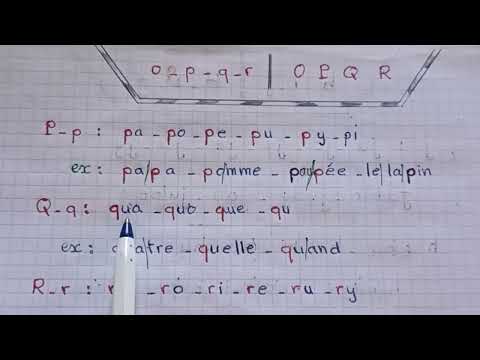 o - p - q - r | O P Q R
P - p : pa - po - pe - pu - py - pi
ex: pa/pa - pomme - pou/pée - le la/pin
Q - q : qua - quo - que - qu
ex: quatre - quelle - quand
R - r : - ro - ri - re - ru - ry